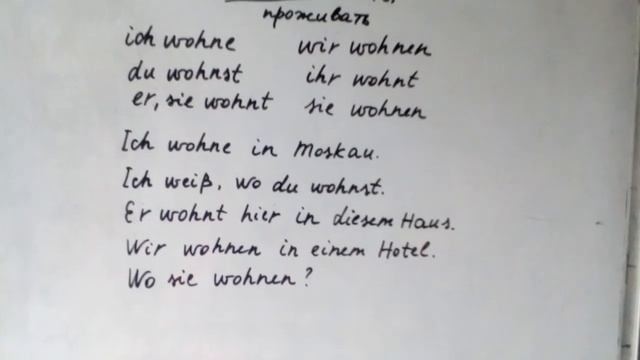 проживать
ich wohne wir wohnen
du wohnst ihr wohnt
er, sie wohnt sie wohnen
Ich wohne in Moskau.
Ich weiß, wo du wohnst.
Er wohnt hier in diesem Haus.
Wir wohnen in einem Hotel.
Wo sie wohnen?